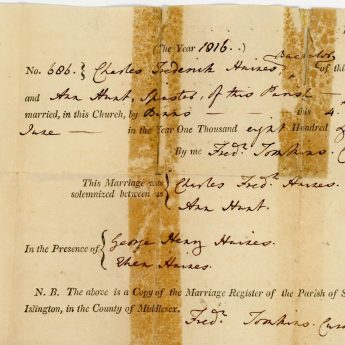 (The Year 1816.)
Bachelor
No. 686. Charles Frederick Haines, of th
and Ann Hunt, Spinster, of this Parish
married, in this Church, by Banns this 4.
June in the Year One Thousand eight Hundred
By me Fred.r Tomkins. C
This Marriage was
solemnized between us
Charles Fred.r Haines.
Ann Hunt.
In the Presence of
George Henry Haines.
Haines.
N. B. The above is a Copy of the Marriage Register of the Parish of S
Islington, in the County of Middlesex.
Fred.r Tomkins. Cura